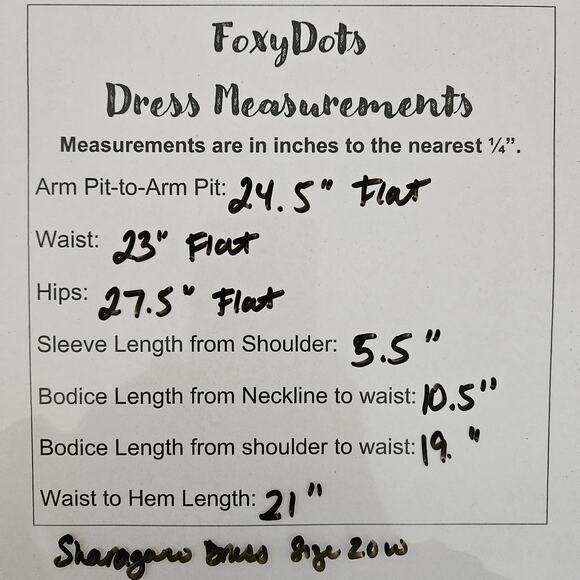 FoxyDots
Dress Measurements
Measurements are in inches to the nearest ¼”.
Arm Pit-to-Arm Pit: 24.5" Flat
Waist: 23" Flat
Hips: 27.5" Flat
Sleeve Length from Shoulder: 5.5"
Bodice Length from Neckline to waist: 10.5"
Bodice Length from shoulder to waist: 19."
Waist to Hem Length: 21"
Sharagano Dress Size 20W